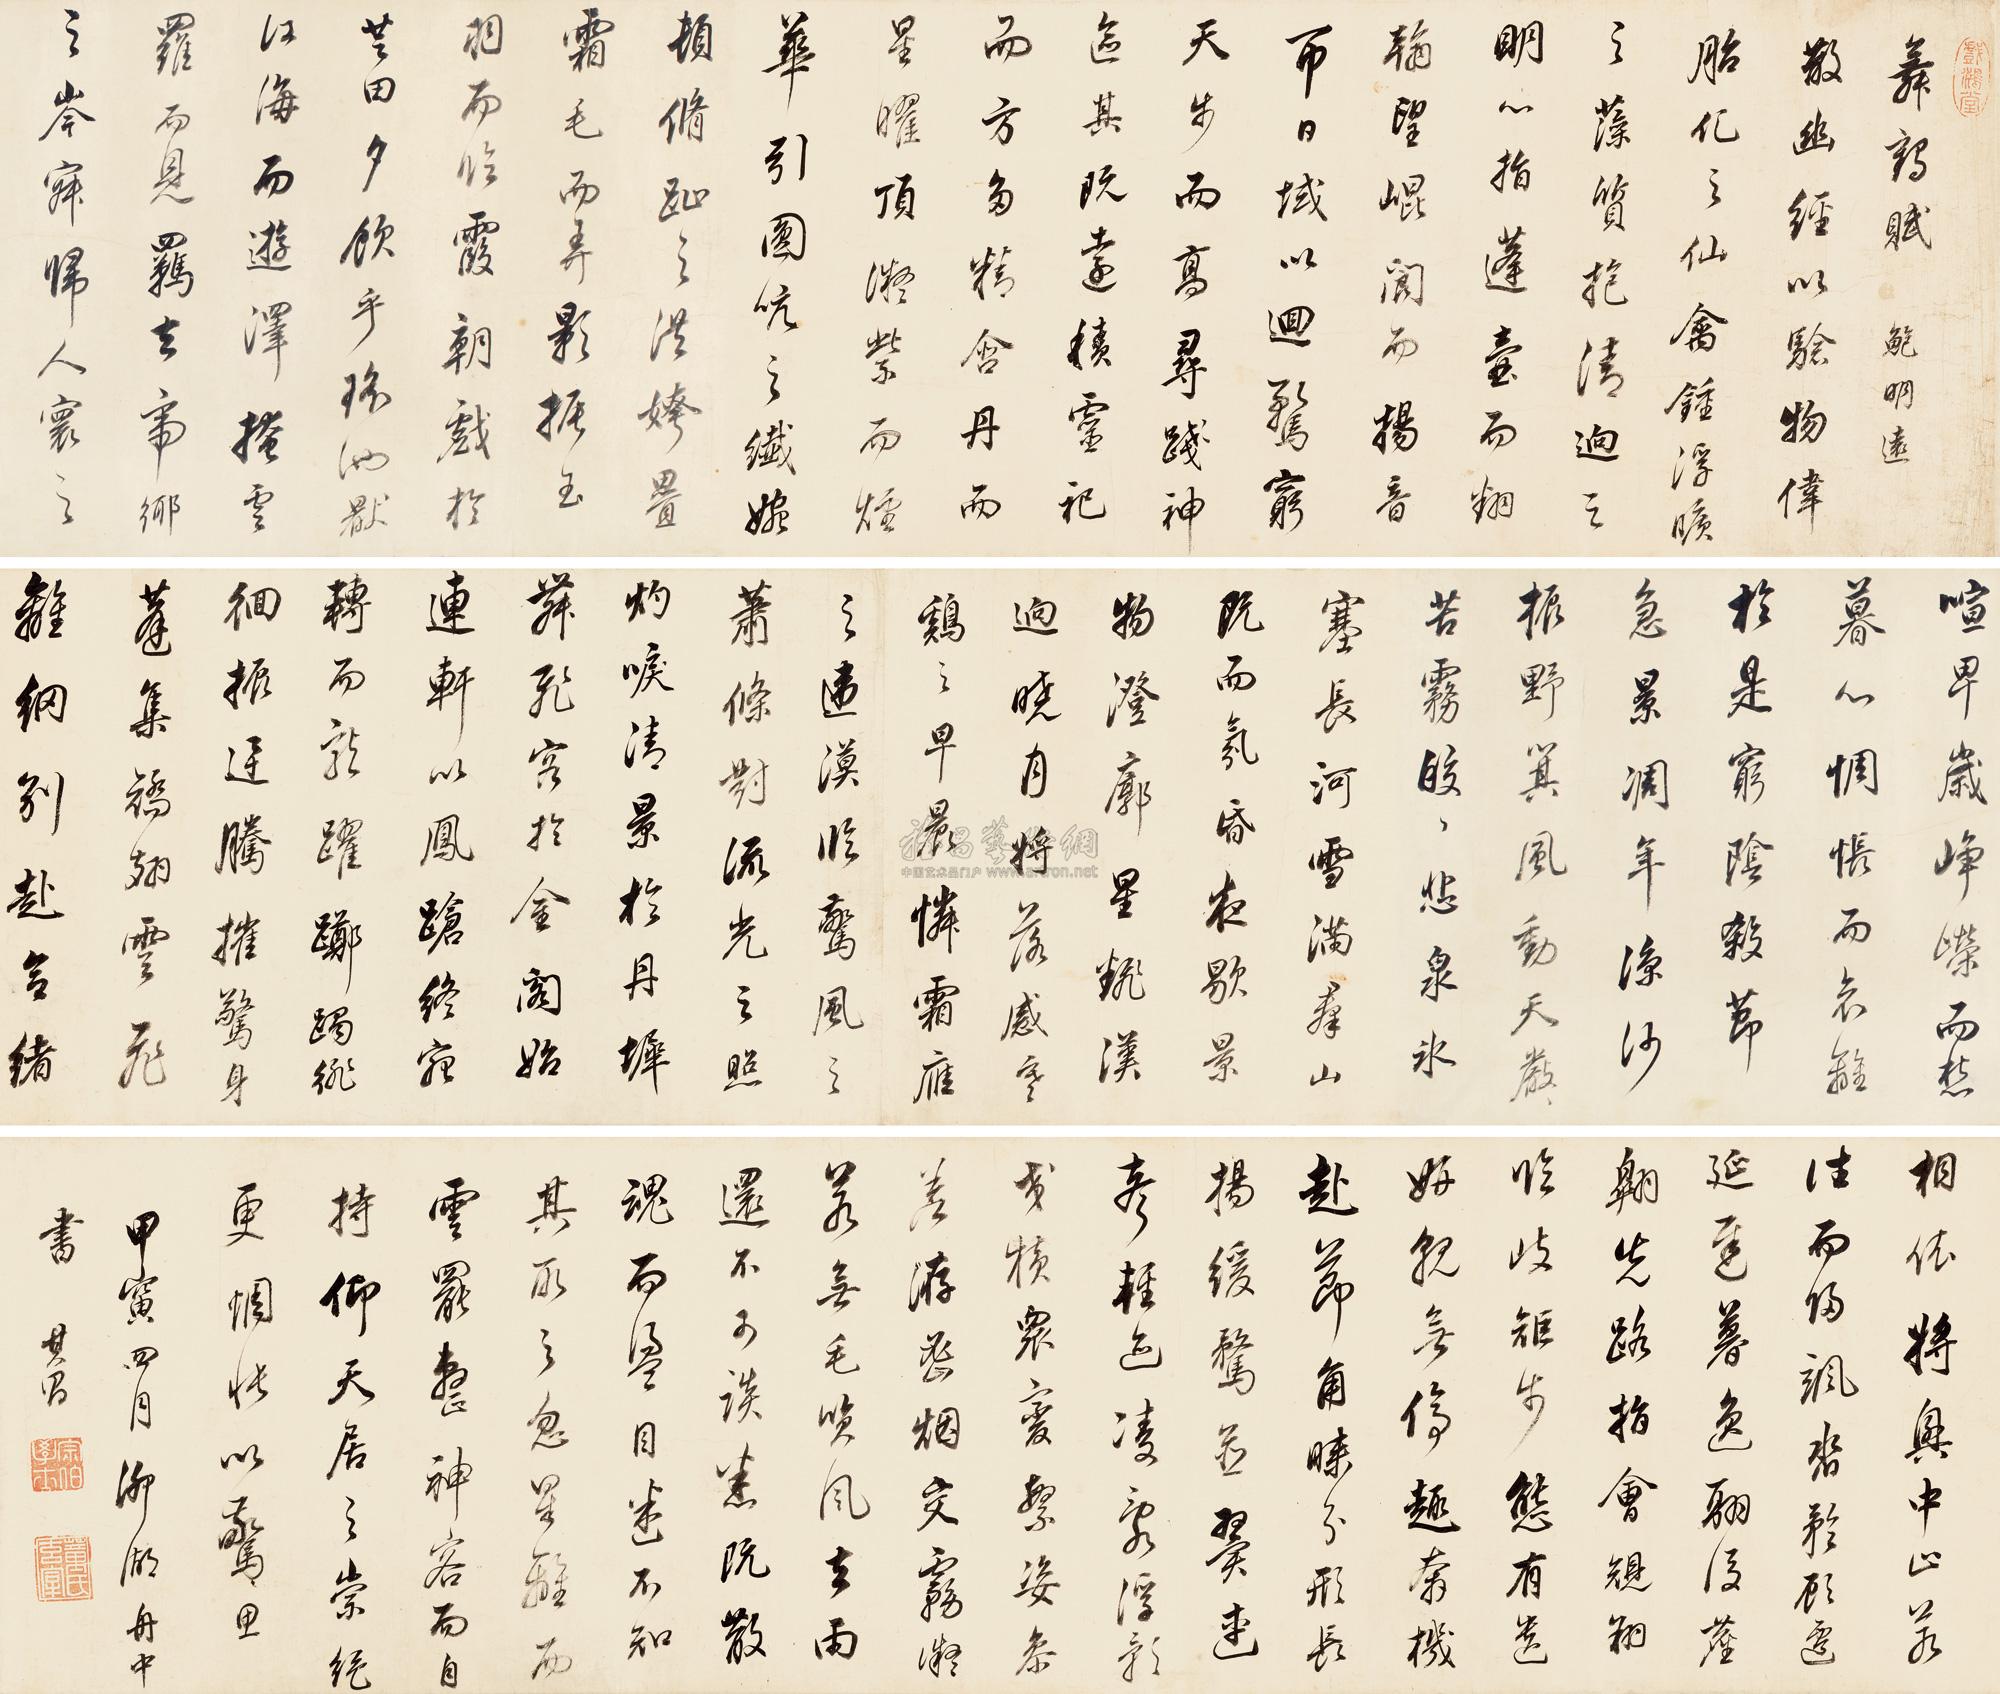 戲鴻堂
舞鶴賦 鮑明遠
散幽經以驗物偉
胎化之仙禽鍾浮曠
之藻質抱清迥之
明心指蓬壺而翻
翰望崐閬而揚音
帀日域以迴騖窮
天步而高尋踐神
區其既遠積靈祀
而方多精含丹而
星曜頂凝紫而烟
華引圓吭之纖婉
頓脩趾之洪姱疊
霜毛而弄影振玉
羽而臨霞朝戲於
芝田夕飲乎瑤池厭
江海而遊澤掩雲
羅而見羈去帝鄉
之岑寂歸人寰之
喧卑歲崢嶸而愁
暮心惆悵而哀離
於是窮陰殺節
急景凋年涼沙
振野箕風動天嚴
苦霧皎皎悲泉冰
塞長河雪滿群山
既而氛昏夜歇景
物澄廓星翻漢
迥曉月將落感寒
鷄之早晨憐霜雁
之違漠臨驚風之
蕭條對流光之照
灼唳清景於丹墀
舞飛容於金閣始
連軒以鳳蹌終宛
轉而龍躍躑躅徘
徊振迅騰摧驚身
蓬集矯翅雪飛
離綱別赴合緒
相依將興中止若
往而歸颯沓矜顧遷
延遲暮逸翮後塵
翱先路指會規翔
臨岐矩步態有遺
妍貌無停趣奔機
赴節角睞分形長
揚緩騖並翼連
聲輕迹凌亂浮影
交橫衆變繁姿參
差洊密烟交霧凝
若無毛質風去雨
還不可談悉既散
魂而盪目迷不知
其所之忽星離而
雲罷整神容而自
持仰天居之崇絕
更惆悵以驚思
甲寅四月泖湖舟中
書 其昌
宗伯學士
董氏玄宰